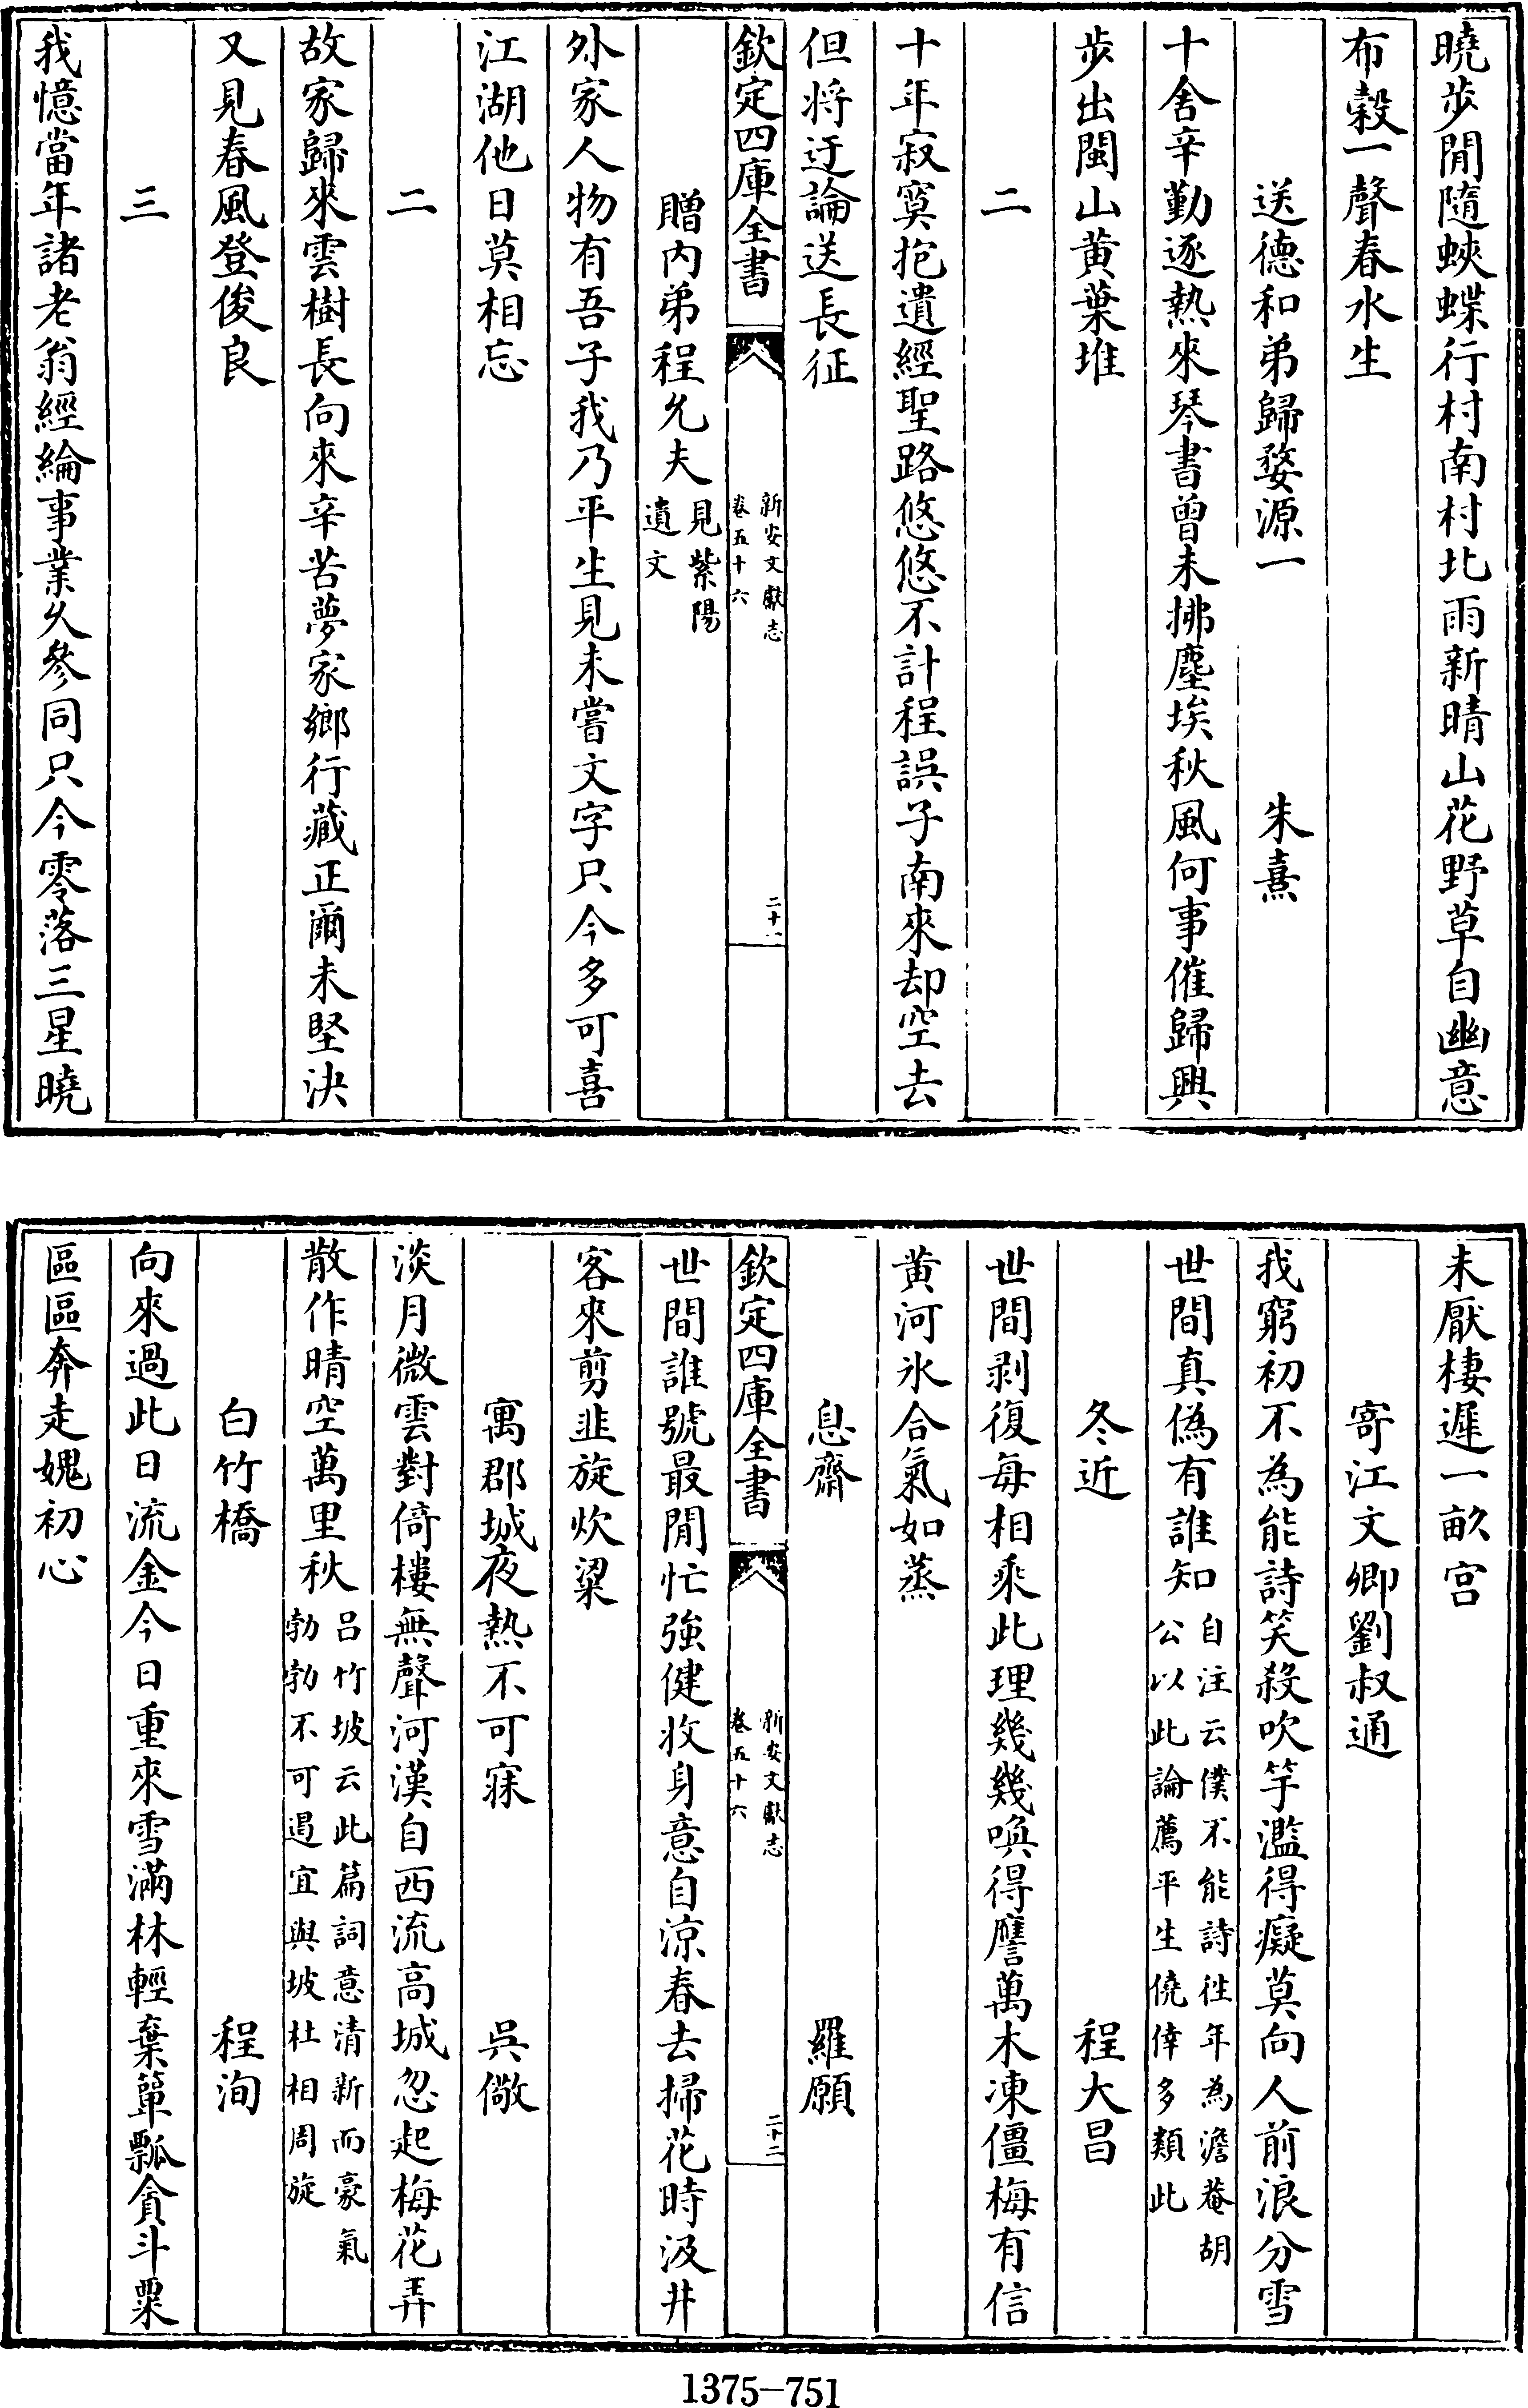 曉步閒隨蛺蝶行村南村北雨新晴山花野草自幽意
布穀一聲春水生
送德和弟歸婺源一　朱熹
十舍辛勤逐熱來琴書曾未拂塵埃秋風何事催歸興
步出閩山黄葉堆
二
十年寂寞抱遺經聖路悠悠不計程誤子南來却空去
但將迂論送長征
欽定四庫全書
新安文獻志
卷五十六
二十一
贈内弟程允夫見紫陽
遺文
外家人物有吾子我乃平生見未嘗文字只今多可喜
江湖他日莫相忘
二
故家歸來雲樹長向來辛苦夢家鄉行藏正爾未堅決
又見春風登俊良
三
我憶當年諸老翁經綸事業久參同只今零落三星曉
未厭棲遲一畝宫
寄江文卿劉叔通
我窮初不為能詩笑殺吹竽濫得癡莫向人前浪分雪
世間真偽有誰知自注云僕不能詩往年為澹菴胡
公以此論薦平生僥倖多類此
冬近　程大昌
世間剥復每相乘此理幾幾喚得譍萬木凍僵梅有信
黄河氷合氣如蒸
息齋　羅願
欽定四庫全書
新安文獻志
卷五十六
二十二
世間誰號最閒忙強健收身意自涼春去掃花時汲井
客來剪韭旋炊粱
寓郡城夜熱不可寐　吳儆
淡月微雲對倚樓無聲河漢自西流高城忽起梅花弄
散作晴空萬里秋吕竹坡云此篇詞意清新而豪氣
勃勃不可遏宜與坡杜相周旋
白竹橋　程洵
向來過此日流金今日重來雪滿林輕棄簞瓢貪斗粟
區區奔走媿初心
1375—751